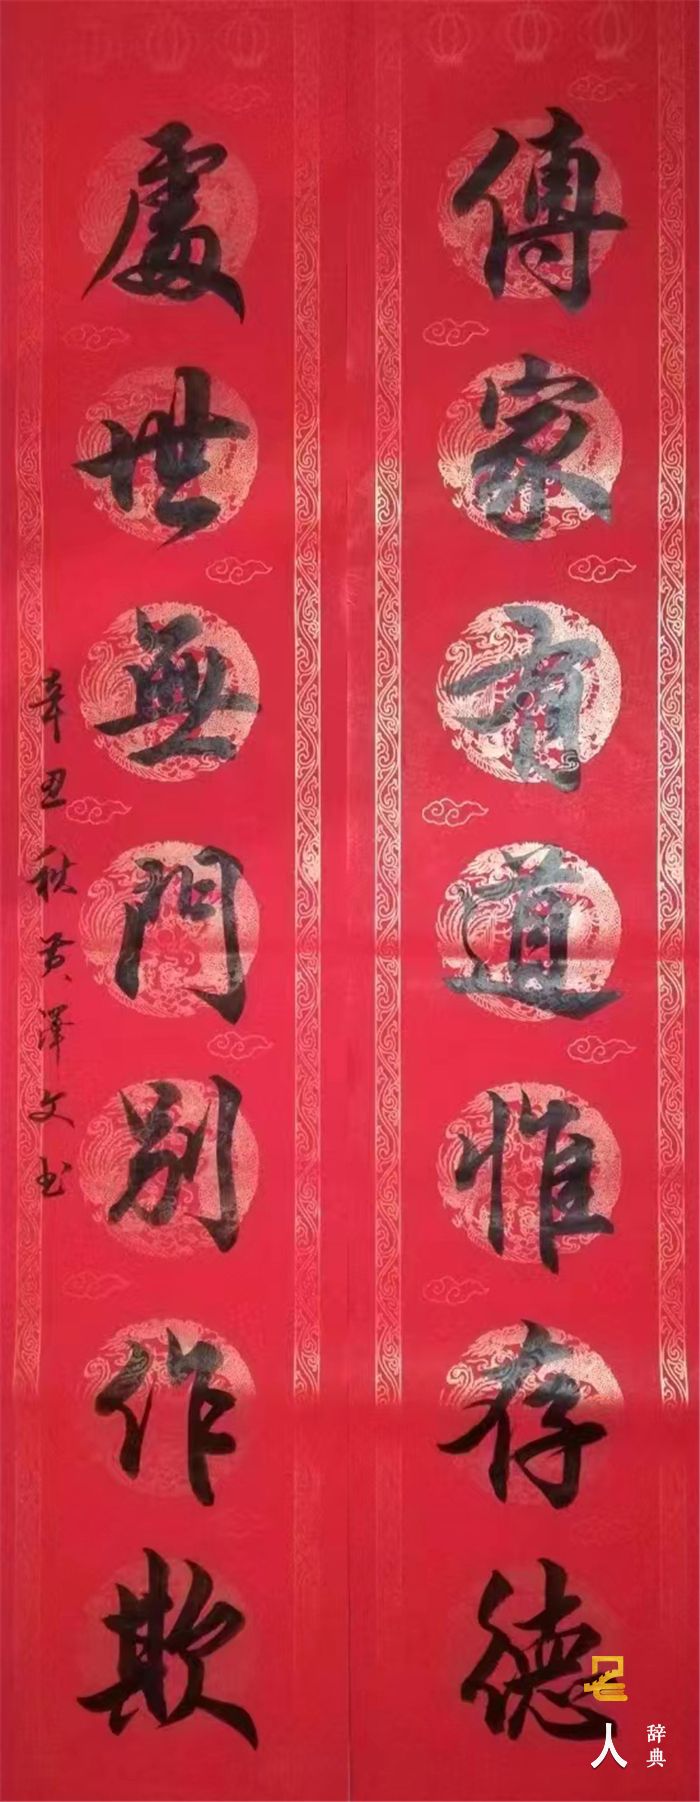 傳家有道惟存德
處世無門別作欺
辛丑秋黄澤文书
名人
辞典